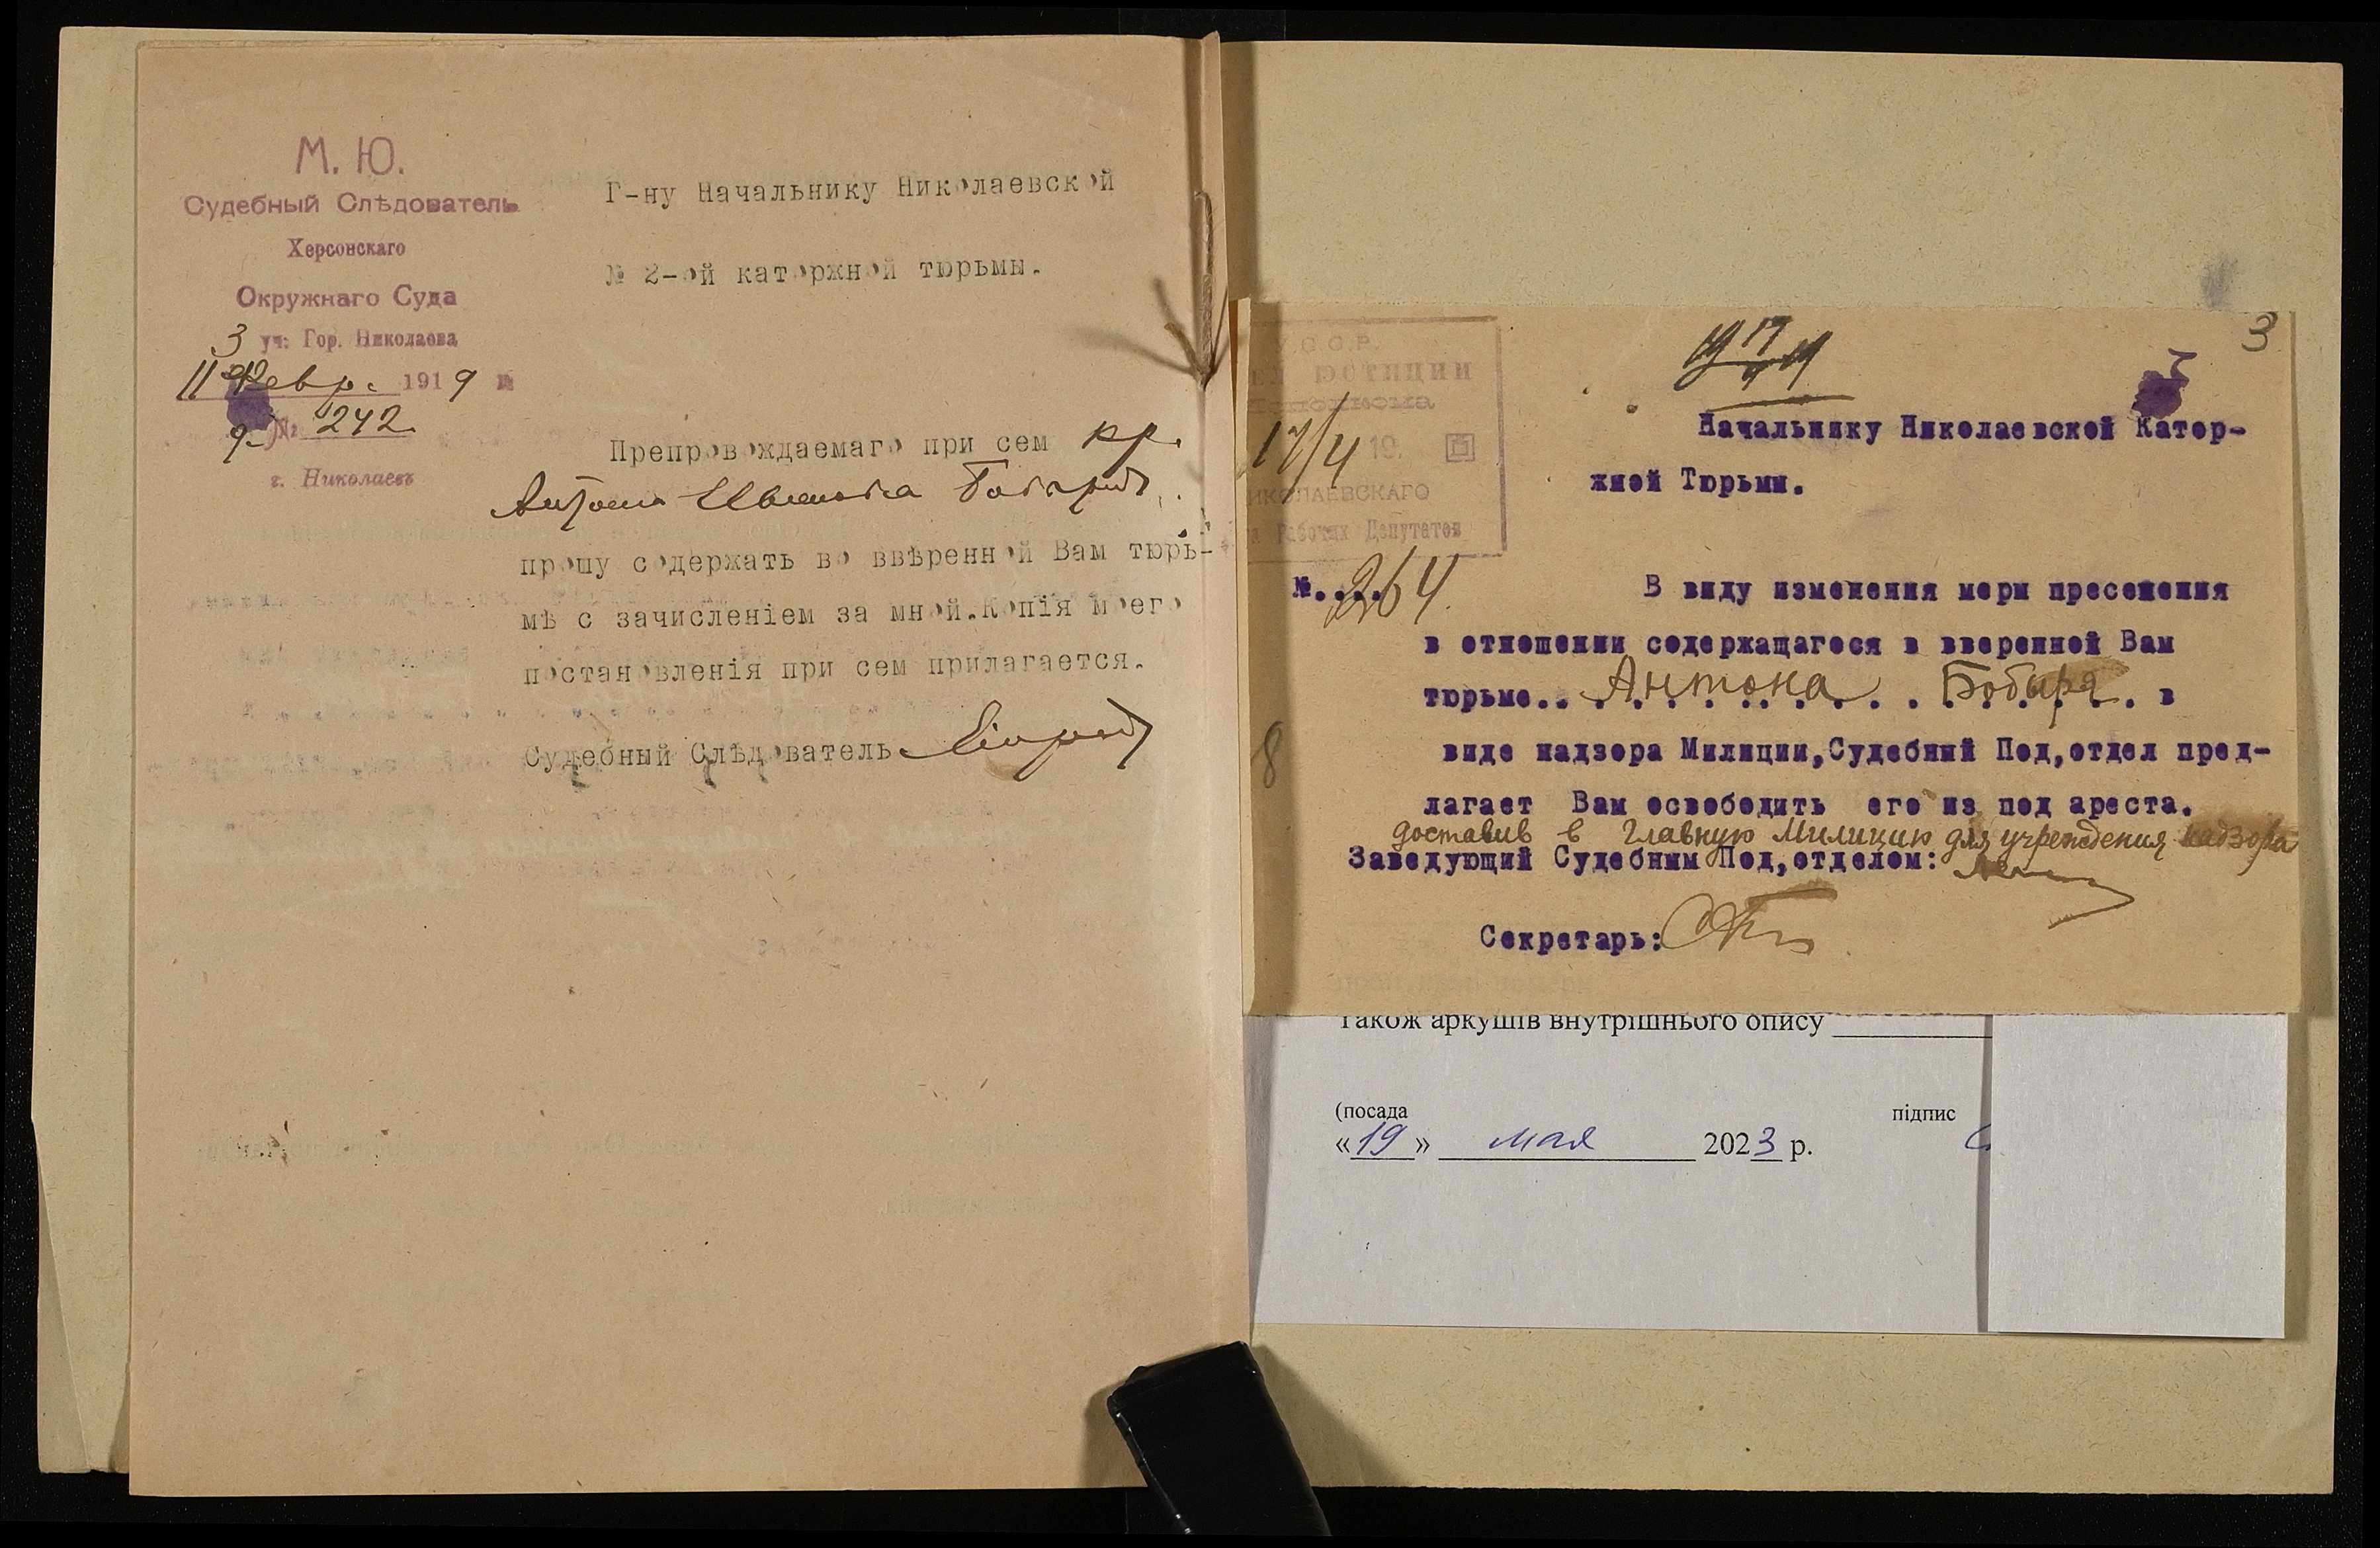 М. Ю.
Судебный Слѣдователь
Херсонскаго
Окружнаго Суда
3 уч: Гор. Николаева
11 февр. 1919 №
№ 242
г. Николаевъ
Г-ну Начальнику Николаевской
№ 2-ой каторжной тюрьмы.
Препровождаемаго при сем кр.
Антона Иванова
прошу содержать во ввѣренной Вам тюрь-
мѣ с зачисленіем за мной.Копія моего
постановленія при сем прилагается.
Судебный Слѣдователь
3
У.С.С.Р.
юстиции
17/4 19
НИКОЛАЕВСКАГО
Рабочих Депутатов
Начальнику Николаевской Катор-
жной Тюрьмы.
№....264.
В виду изменения меры пресечения
в отношении содержащагося в вверенной Вам
тюрьме.. Антона Бобыря. в
виде надзора Милиции,Судебный Под,отдел пред-
лагает Вам освободить его из под ареста.
доставив в Главную Милицию для учреждения надзора
Заведующий Судебным Под,отделом:
Секретарь:
8
також аркушів внутрішнього опису
(посада
підпис
«19» мая 2023 р.